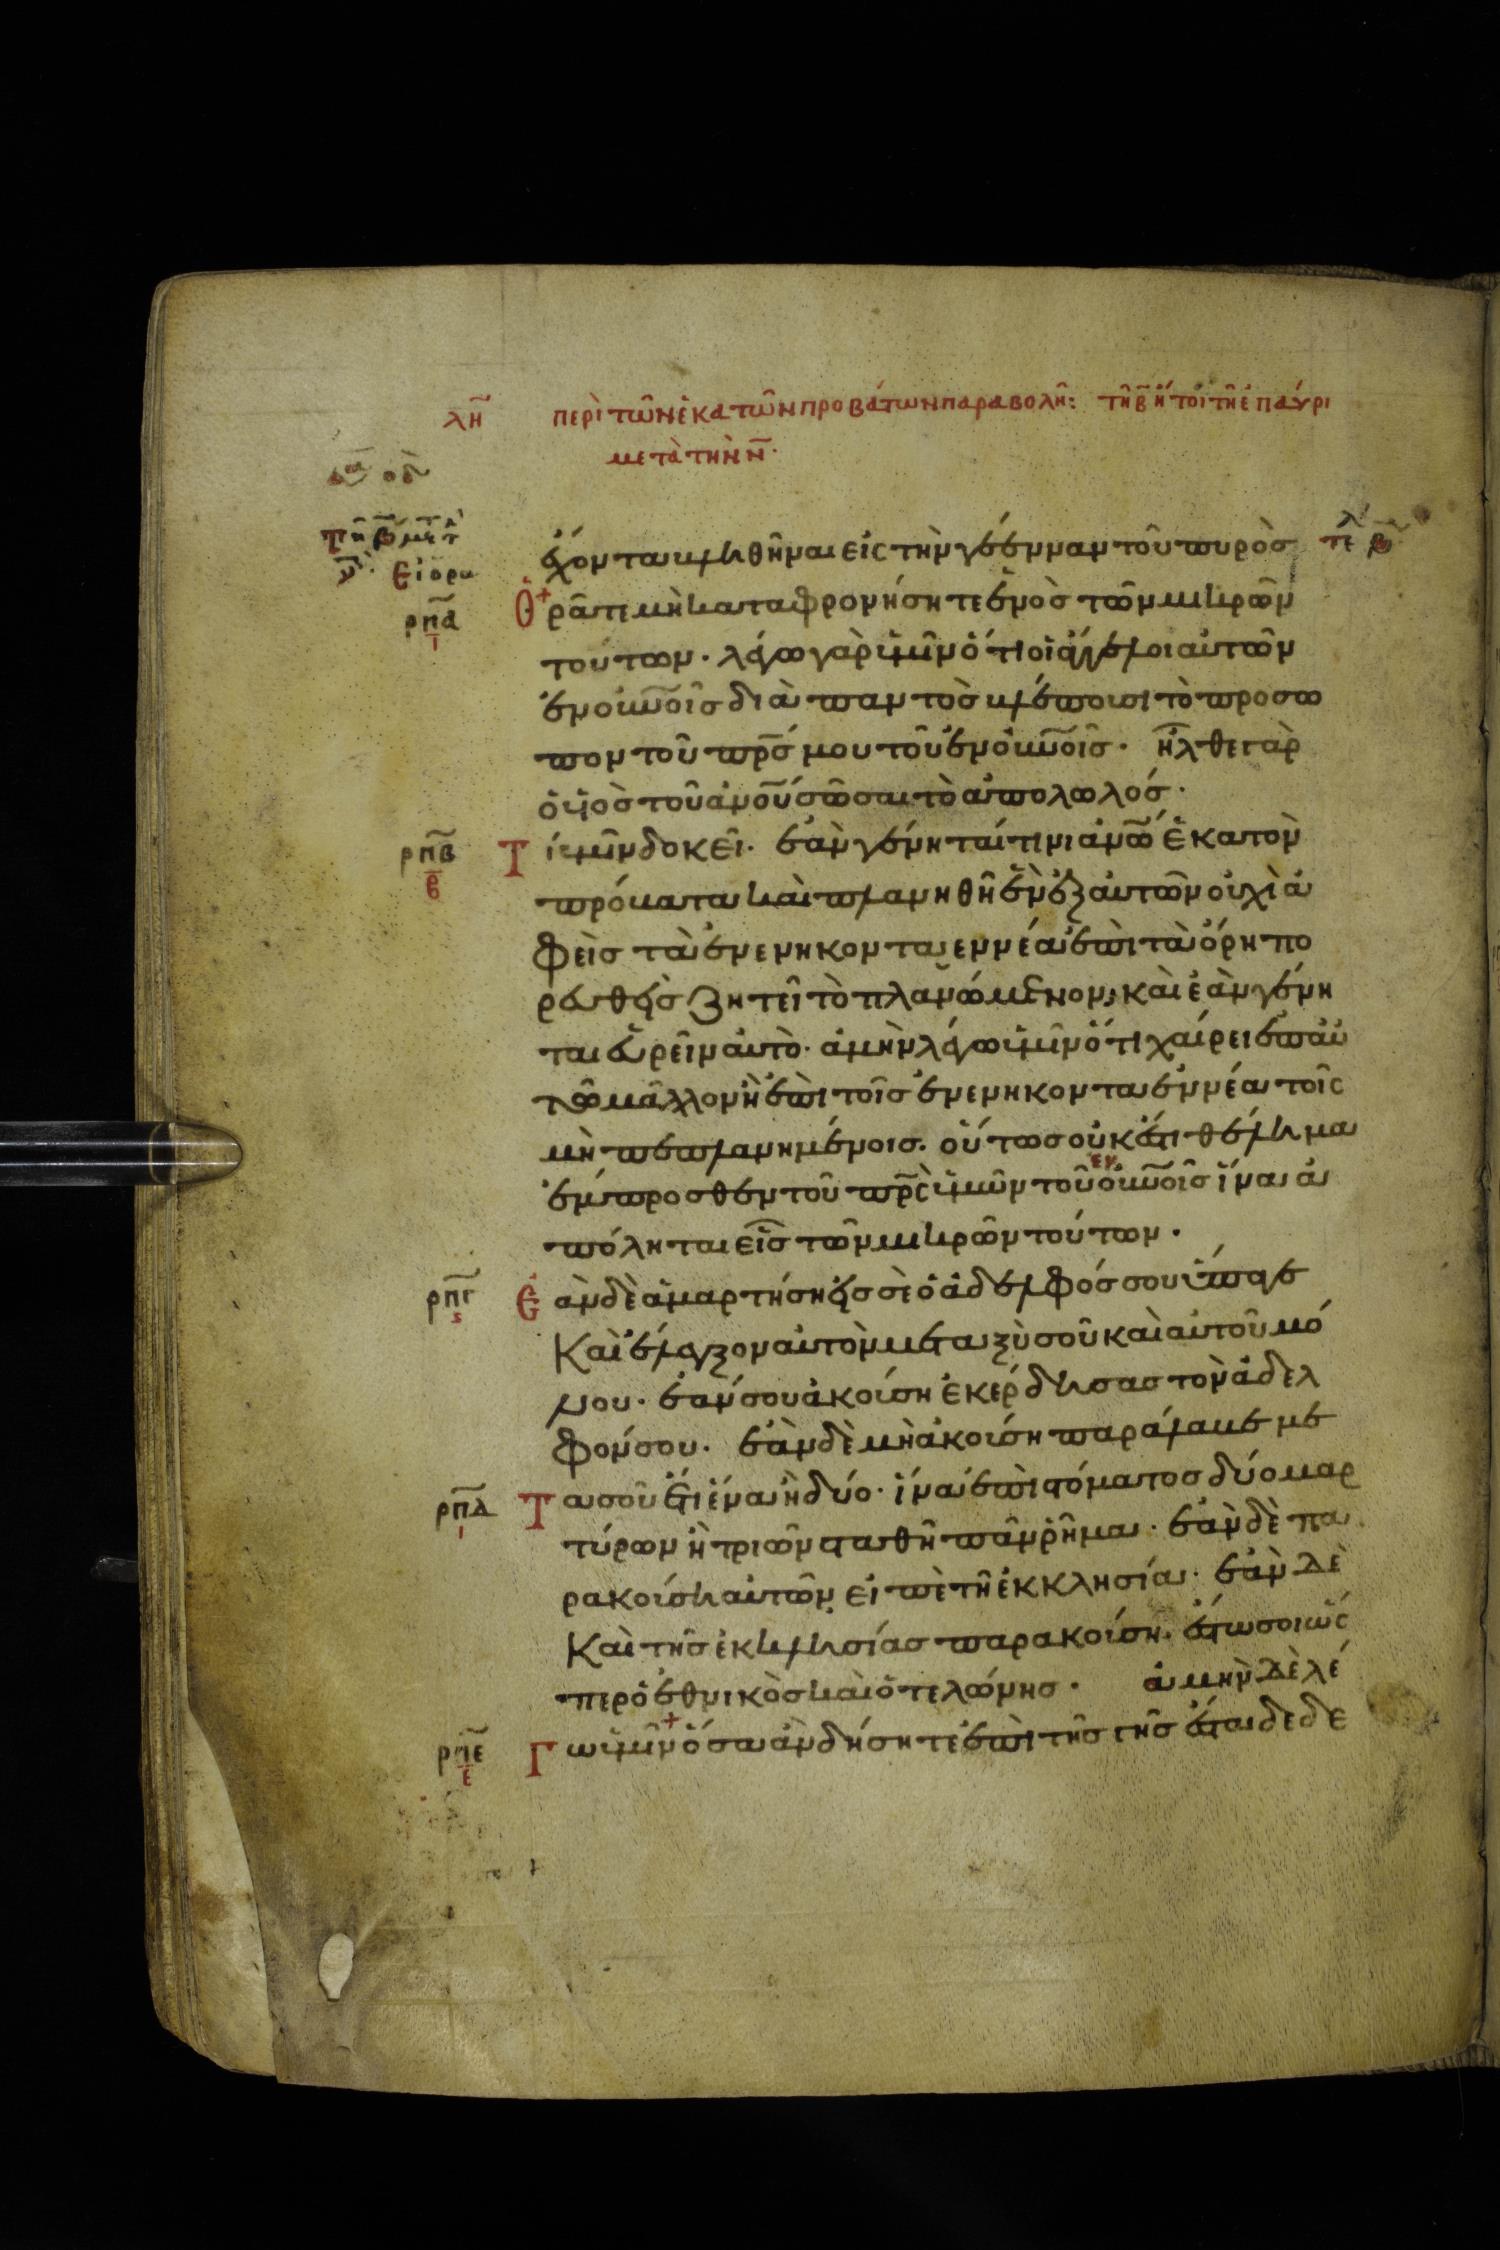 λη περὶ τῶν ἑκατῶν προβάτων παραβολῆ: τῆ β ἤτοι τῆ ἐπαύρι
μετὰ τὴν ν·
ἔχοντα βληθῆναι εἰς τὴν γέενναν τοῦ πυρὸσ τε
ρπα Ὁρᾶτι μὴ καταφρονήσητε ἑνὸσ τῶν μικρῶν
τούτων· λέγω γὰρ ὑμῖν ὅτι οἱ ἄγγελοι αὐτῶν
ἐν οὐνοῖσ διὰ παντὸσ βλέποισι τὸ προσω
πον τοῦ πρσ μου τοῦ ἐν οὐνοῖσ· ἦλθε γαρ
ὁ ὑὸσ τοῦ ἀνοῦ σῶσαι τὸ ἀπολωλόσ·
ρπβ Τί ὑμῖν δοκεῖ· ἐὰν γένηταί τινι ἀνῶ ἑκατον
πρόβατα καὶ πλανηθῆ ἓν ἐξ αὐτῶν οὐχὶ ἀ
φεὶσ τὰ ἐνενηκονταεννέα ἐπὶ τὰ ὄρη πο
ρευθεὶσ ζητεῖ τὸ πλανώμενον; καὶ ἐὰν γένη
ται εὑρεῖν αὐτὸ· ἀμὴν λέγω ὑμῖν ὅτι χαίρει ἐπ αὐ
τῶ μᾶλλον ἢ ἐπὶ τοῖσ ἐνενηκονταεννέα τοῖς
μὴ πεπλανημένοισ· οὕτωσ οὐκ ἔστι θέλημα
ἔμπροσθεν τοῦ πρς ὑμῶν τοῦ ἐν οὐνοῖσ ἵνα ἀ
πόληται εἷσ τῶν μικρῶν τούτων·
ρπγ Ἐὰν δὲ ἁμαρτήση εἰσ σὲ ὁ ἀδελφόσ σου ὕπαγε
Καὶ ἔλεγξον αὐτὸν μεταξὺ σοῦ καὶ αὐτοῦ μό
νου· ἐάν σου ἀκοίση ἐκερδησασ τὸν ἀδελ
φόν σου· ἐὰν δὲ μὴ ἀκοίση παράλαβε με
ρπδ Τα σοῦ ἔτι ἕνα ἢ δύο· ἵνα ἐπὶ στόματοσ δύο μαρ
τύρων ἢ τριῶν σταθῆ πᾶν ῥῆμα· ἐὰν δὲ πα
ρακοίση αὐτῶν εἰπὲ τῆ ἐκκλησία· ἐὰν δὲ
Καὶ τῆσ ἐκκλησίασ παρακοίση· ἔστω σοι ὥς
περ ὁ ἐθνικὸσ καὶ ὁ τελώνησ· ἀμὴν δὲ λέ
ρπε Γω ὑμῖν ὅσα ἀν δήσητε ἐπὶ τῆσ γῆσ ἔσται δεδε